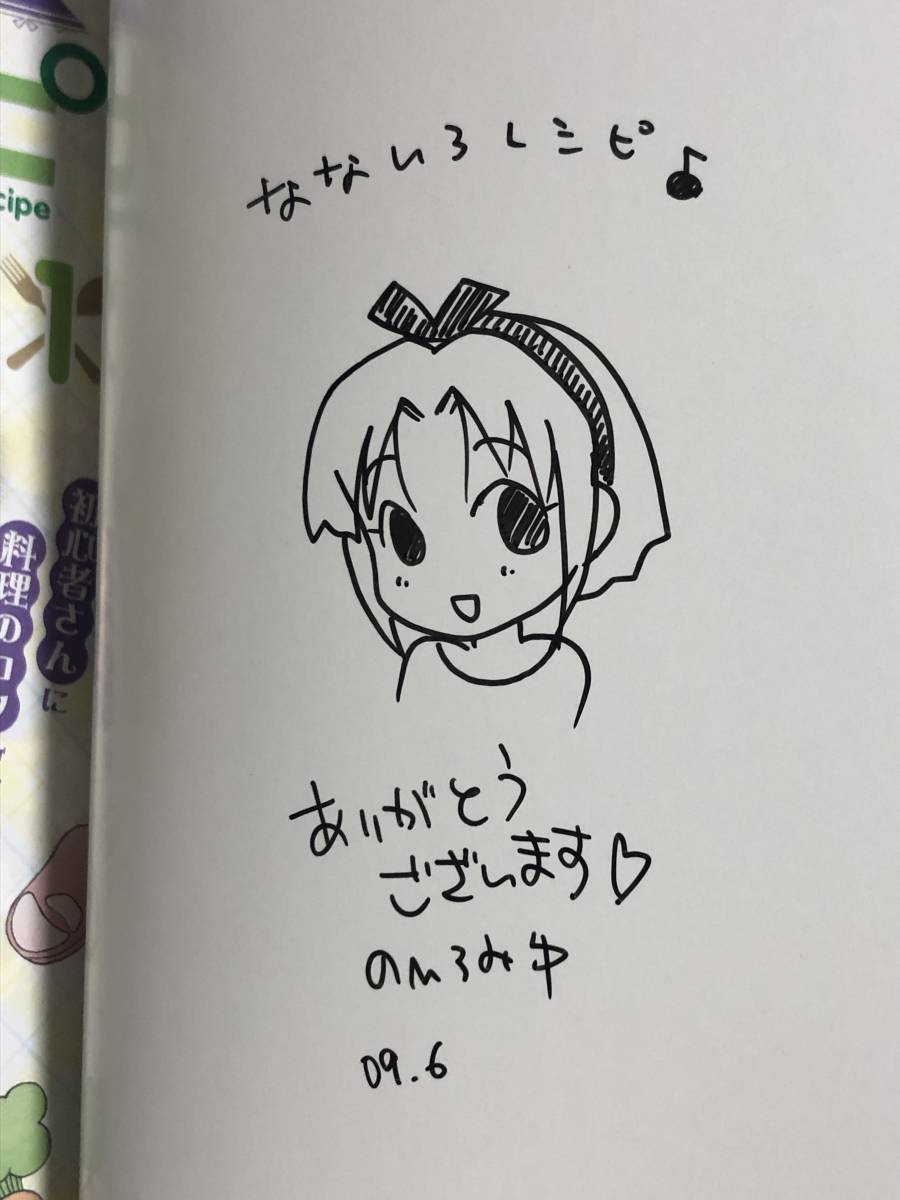 なないろレシピ♪
ありがとう
ございます♡
のいろみ中
09.6
cipe
1
初心者さんに
料理のコツ